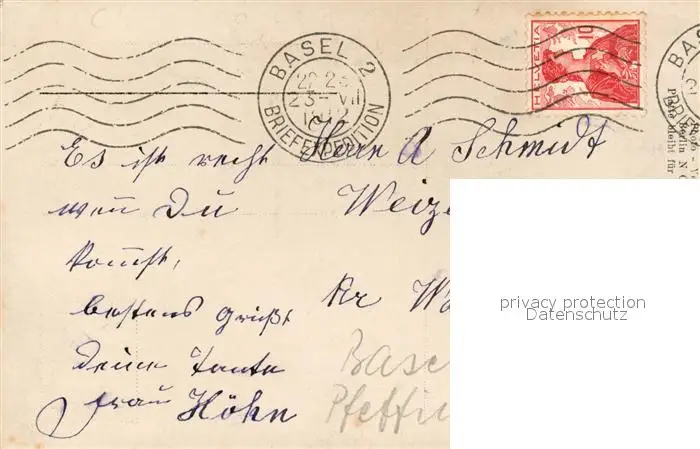 BASEL 2
23. VII
BRIEFEXPEDITION
HELVETIA
10
BAS
Berlin N
Platte bleibt für
Es ist recht
wenn Du
kommst,
bestens grüßt
Deine Tante
Frau Höhn
Herrn A Schmidt
Weize
Kr W
Base
Pfeffi
privacy protection
Datenschutz